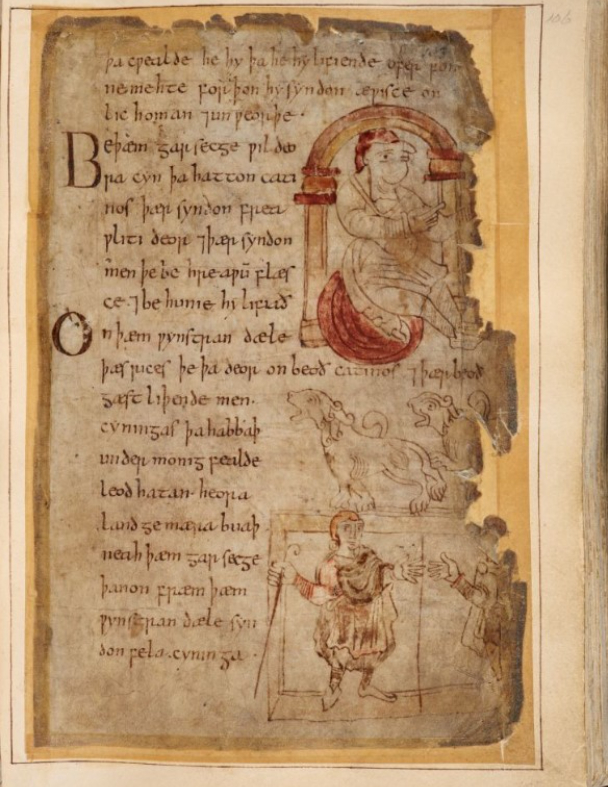 þa cƿealde he hy þa he hy lifiende ofer fon
ne mehte forþon hy syndon æƿisce on
lic homan ⁊ unƿeorþe ·
Beþæm gar secge ƿil deo
ra cyn þa hatton cati
nos þær syndon frea
ƿliti deor ⁊ þær syndon
men þe be hreaƿū flæs
ce · ⁊ be hunie hy lifiað
On þæm ƿynstran dæle
þæs rices þe þa deor on beoð catinos ⁊ þær beoð
gæst liþende men ·
cyningas þa habbaþ
under monig fealde
leod hatan · heora
land ge mæra buaþ
neah þæm gar secge
þanon fram þæm
ƿynstran dæle syn
don fela · cyninga ·
106